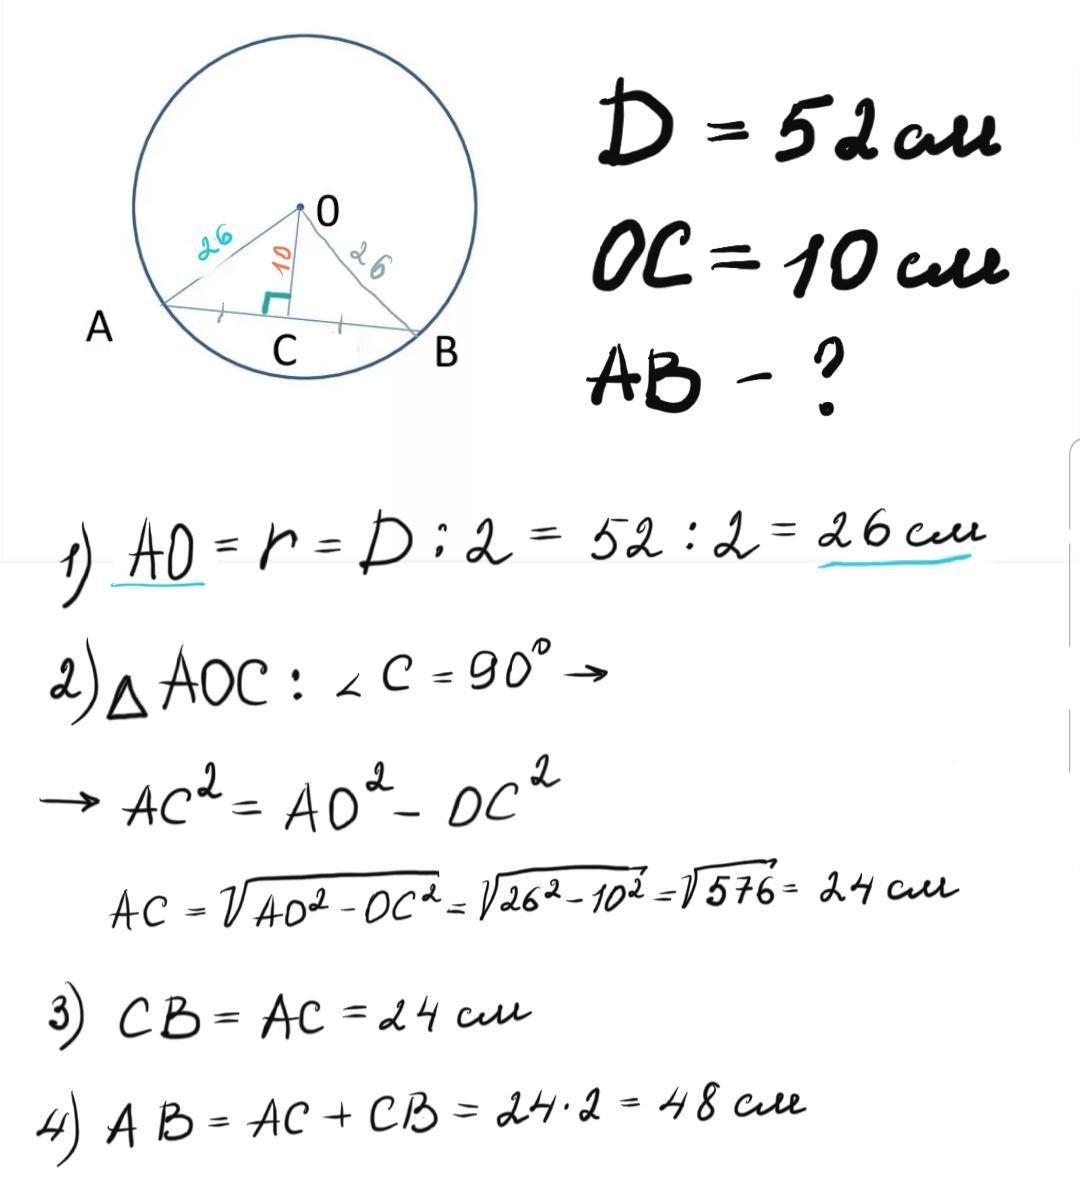 26
O
10
26
A
C
B
D = 52 см
OC = 10 см
AB - ?
1) AO = r = D : 2 = 52 : 2 = 26 см
2) △ AOC : ∠ C = 90° →
→ AC² = AO² - OC²
AC = √AO² - OC² = √26² - 10² = √576 = 24 см
3) CB = AC = 24 см
4) AB = AC + CB = 24 · 2 = 48 см